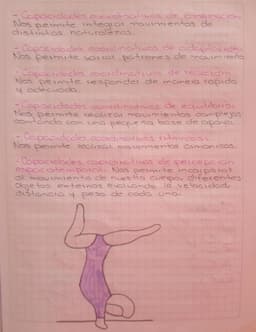 - Capacidades coordinativas de
Nos permite integrar movimientos de
distintas naturaleza.
- Capacidades coordinativas de adaptación
Nos permite variar patrones de movimiento
- Capacidades coordinativas de reacción
Nos permite responder de manera rápida
y adecuada.
- Capacidades coordinativas de equilibrio
Nos permite realizar movimientos complejos
contando con una pequeña base de apoyo
- Capacidades coordinativas rítmicas:
Nos permite realizar movimientos armónicos.
- Capacidades coordinativas de percepción
espacotemporal: Nos permite incorporar
al movimiento de nuestro cuerpo, diferentes
objetos externos evaluando la velocidad,
distancia y peso de cada uno.